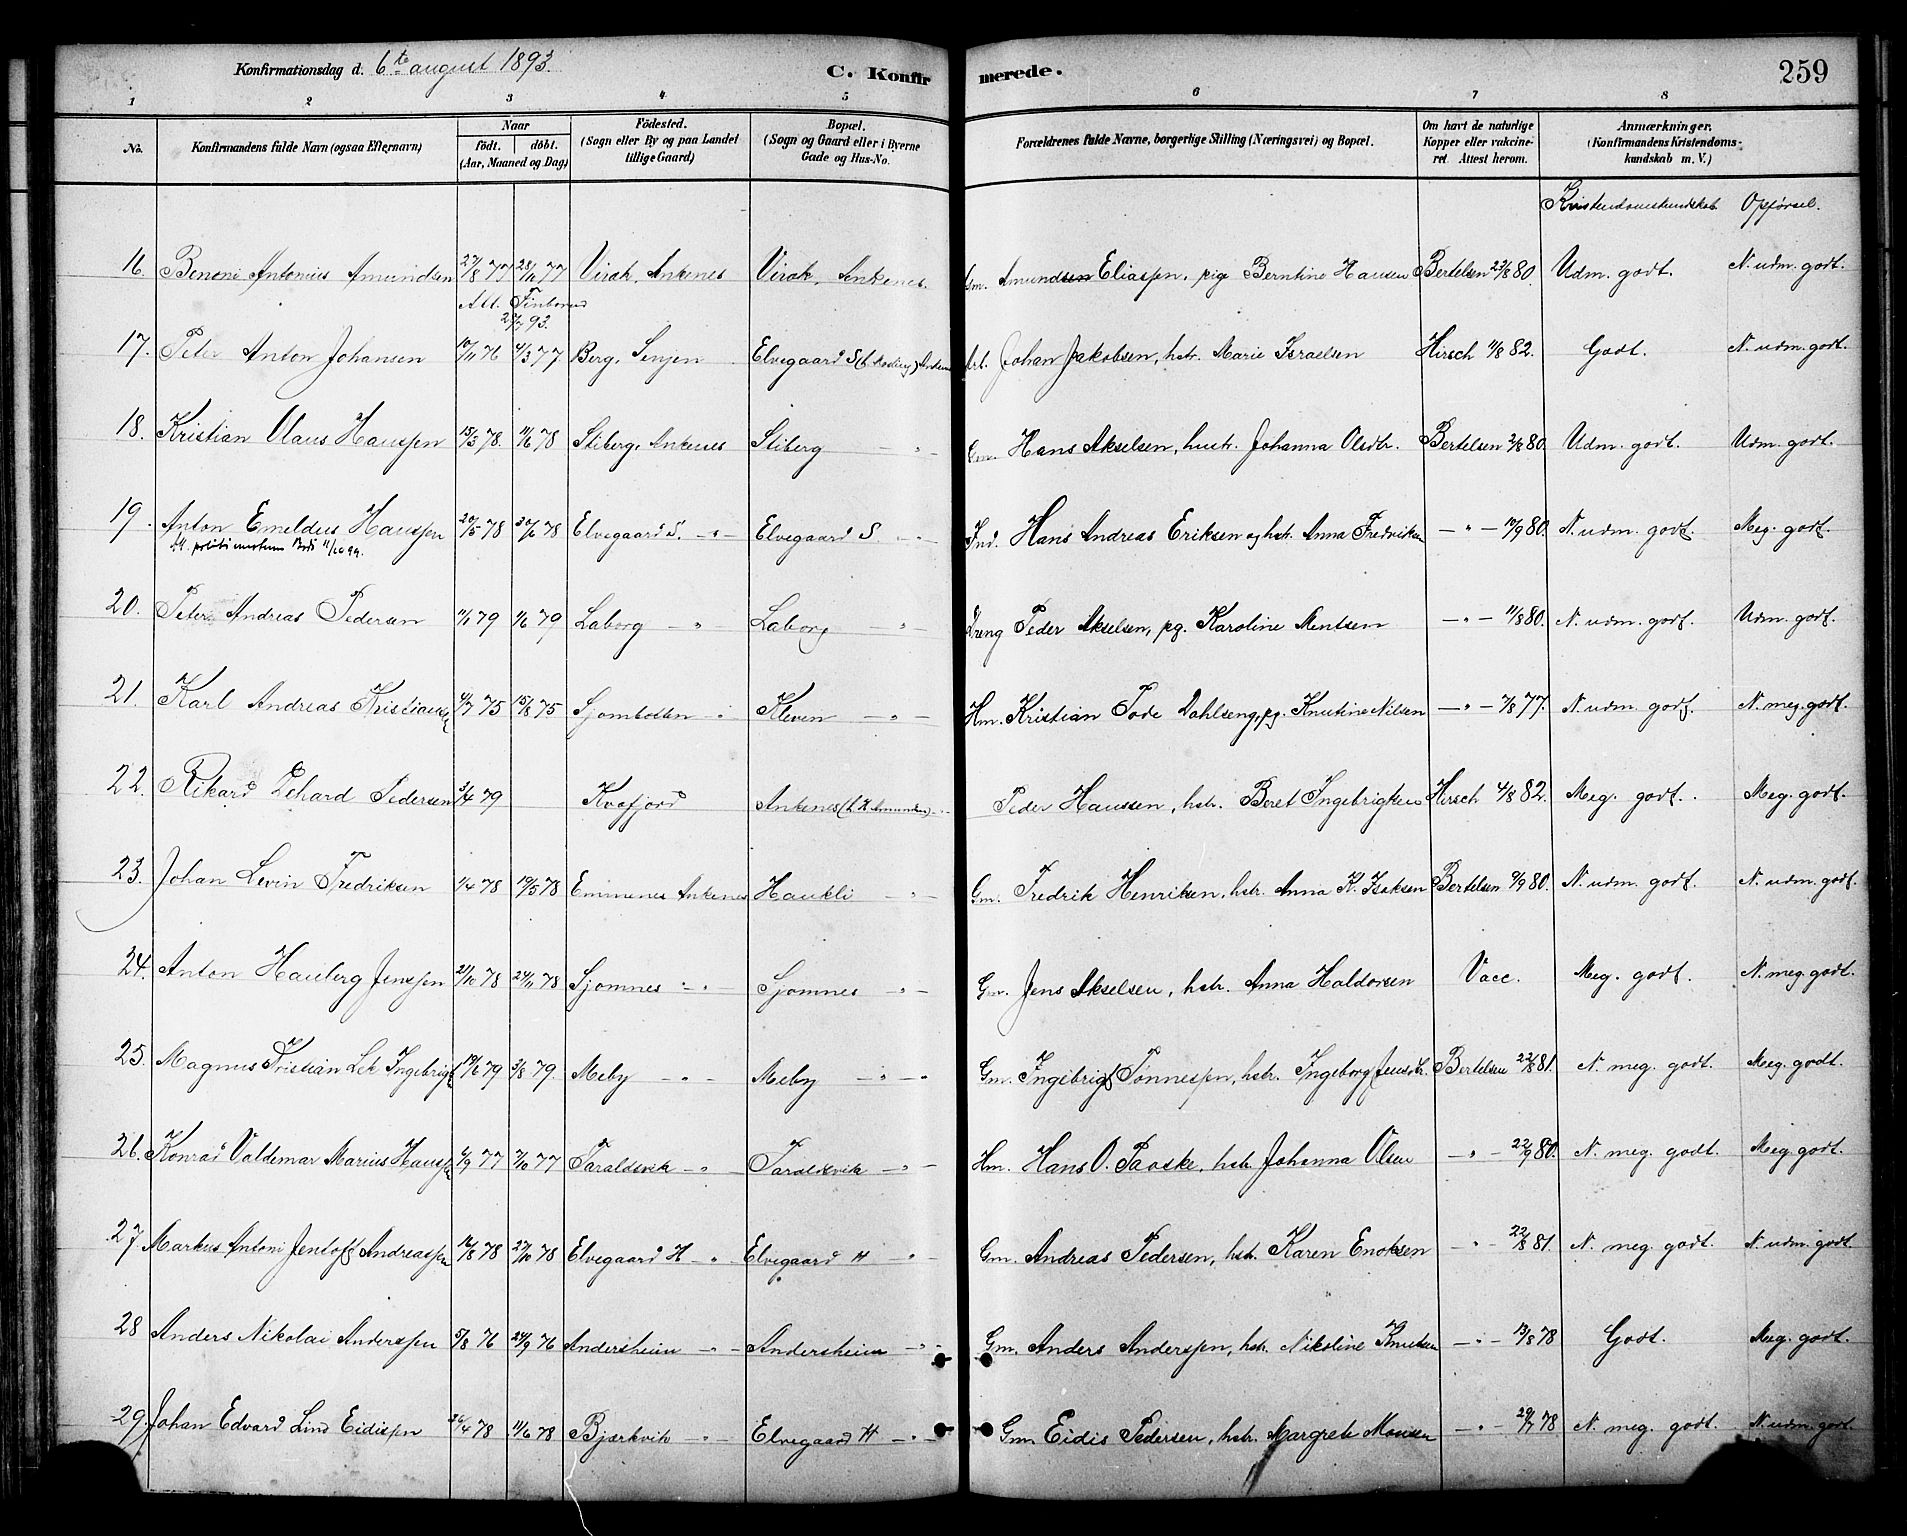 Konfirmationsdag d. 6te august 1893. C. Konfirmerede. 259
1 2 3 4 5 6 7 8
No. Konfirmandens fulde Navn (ogsaa Efternavn) Naar födt. döbt. (Aar, Maaned og Dag) Födested. (Sogn eller By og paa Landet tillige Gaard) Bopæl. (Sogn og Gaard eller i Byerne Gade og Hus-No. Forældrenes fulde Navne, borgerlige Stilling (Næringsvei) og Bopæl. Om havt de naturlige Kopper eller vakcineret. Attest herom. Anmærkninger. (Konfirmandens Kristendomskundskab m. V.)
Kristendomskundskab Opførsel.
16. Benoni Antonius Amundsen 27/8 77 28/11 77 Virak, Ankenes Virak, Ankenes. Gm. Amund Eliassen, pig Berntine Hansen Bertelsen 23/8 80. Udm. godt. N. udm. godt.
Att. 27/7 93.
17. Peter Anton Johansen 10/11 76 4/3 77 Berg, Senjen Elvegaard S Arb. Johan Jakobsen, hstr. Marie Israelsen Hirsch 11/8 82. Godt. N. udm. godt.
18. Kristian Olaus Hanssen 15/3 78. 11/6 78 Stiberg, Ankenes Stiberg - " - Gm. Hans Akselsen, hustr. Johanna Olsdtr. Bertelsen 2/8 80. Udm. godt. Udm. godt.
19. Anton Emeldus Hanssen 20/5 78 30/6 78 Elvegaard S. - " - Elvegaard S - " - Ind. Hans Andreas Eriksen og hstr. Anna Fredriksen - " - 17/9 80. N. udm. godt. Meg. godt.
20. Peter Andreas Pedersen 11/1 79 1/6 79 Laborg - " - Laborg " Dreng Peder Akselsen, pg. Karoline Mentsen - " - 11/8 80. N. udm. godt. Udm. godt.
21. Karl Andreas Kristiansen 4/7 75 15/8 75 Sjombotten " Kleven - " - Hm. Kristian Tode Dahlseng, pg. Knutine Nilsen - " - 7/8 77. N. udm. godt. N. meg. godt.
22. Rikard Edhard Pedersen 3/4 79 Kvafjord Ankenes Peder Hanssen, hstr. Beret Ingebrigtsen Hirsch 4/8 82. Meg. godt. Meg. godt.
23. Johan Levin Fredriksen 1/4 78 19/5 78 Emmenes Ankenes Haukli - " - Gm. Fredrik Henriksen, hstr. Anna K. Isaksen Bertelsen 9/9 80. N. udm. godt. N. udm. godt.
24. Anton Hauberg Jenssen 21/10 78 24/11 78 Sjomnes - " - Sjomnes - " - Gm. Jens Akselsen, hstr. Anna Haldorsen Vacc. Meg. godt. N. meg. godt.
25. Magnus Kristian Lek Ingebrigts 19/6 79 3/8 79. Meby - " - Meby - " - Gm. Ingebrigt Tønnessen, hstr. Ingeborg Jensdtr. Bertelsen 22/8 81. N. meg. godt. Meg. godt.
26. Konrad Valdemar Marius Hanssen 4/9 77 7/10 77 Taraldsvik - " - Taraldsvik - " - Hm. Hans O. Paaske, hstr. Johanna Olsen - " - 22/9 80. N. meg. godt. Meg. godt.
27. Markus Antoni Jentoft Andreassen 16/8 78 27/10 78 Elvegaard H - " - Elvegaard H - " - Gm. Andreas Pedersen, hstr. Karen Enoksen - " - 22/8 81. N. meg. godt. N. udm. godt.
28 Anders Nikolai Anderssen 5/8 76 24/9 76 Andersheim - " - Andersheim - " - Gm. Anders Anderssen, hstr. Nikoline Knutsen - " - 13/8 78 Godt. Meg. godt.
29. Johan Edvard Lind Eidissen 26/4 78 11/6 78 Bjærkvik " Elvegaard H - " - Gm. Eidis Pedersen, hstr. Margrete Monsen - " - 29/7 78 N. meg. godt. N. udm. godt